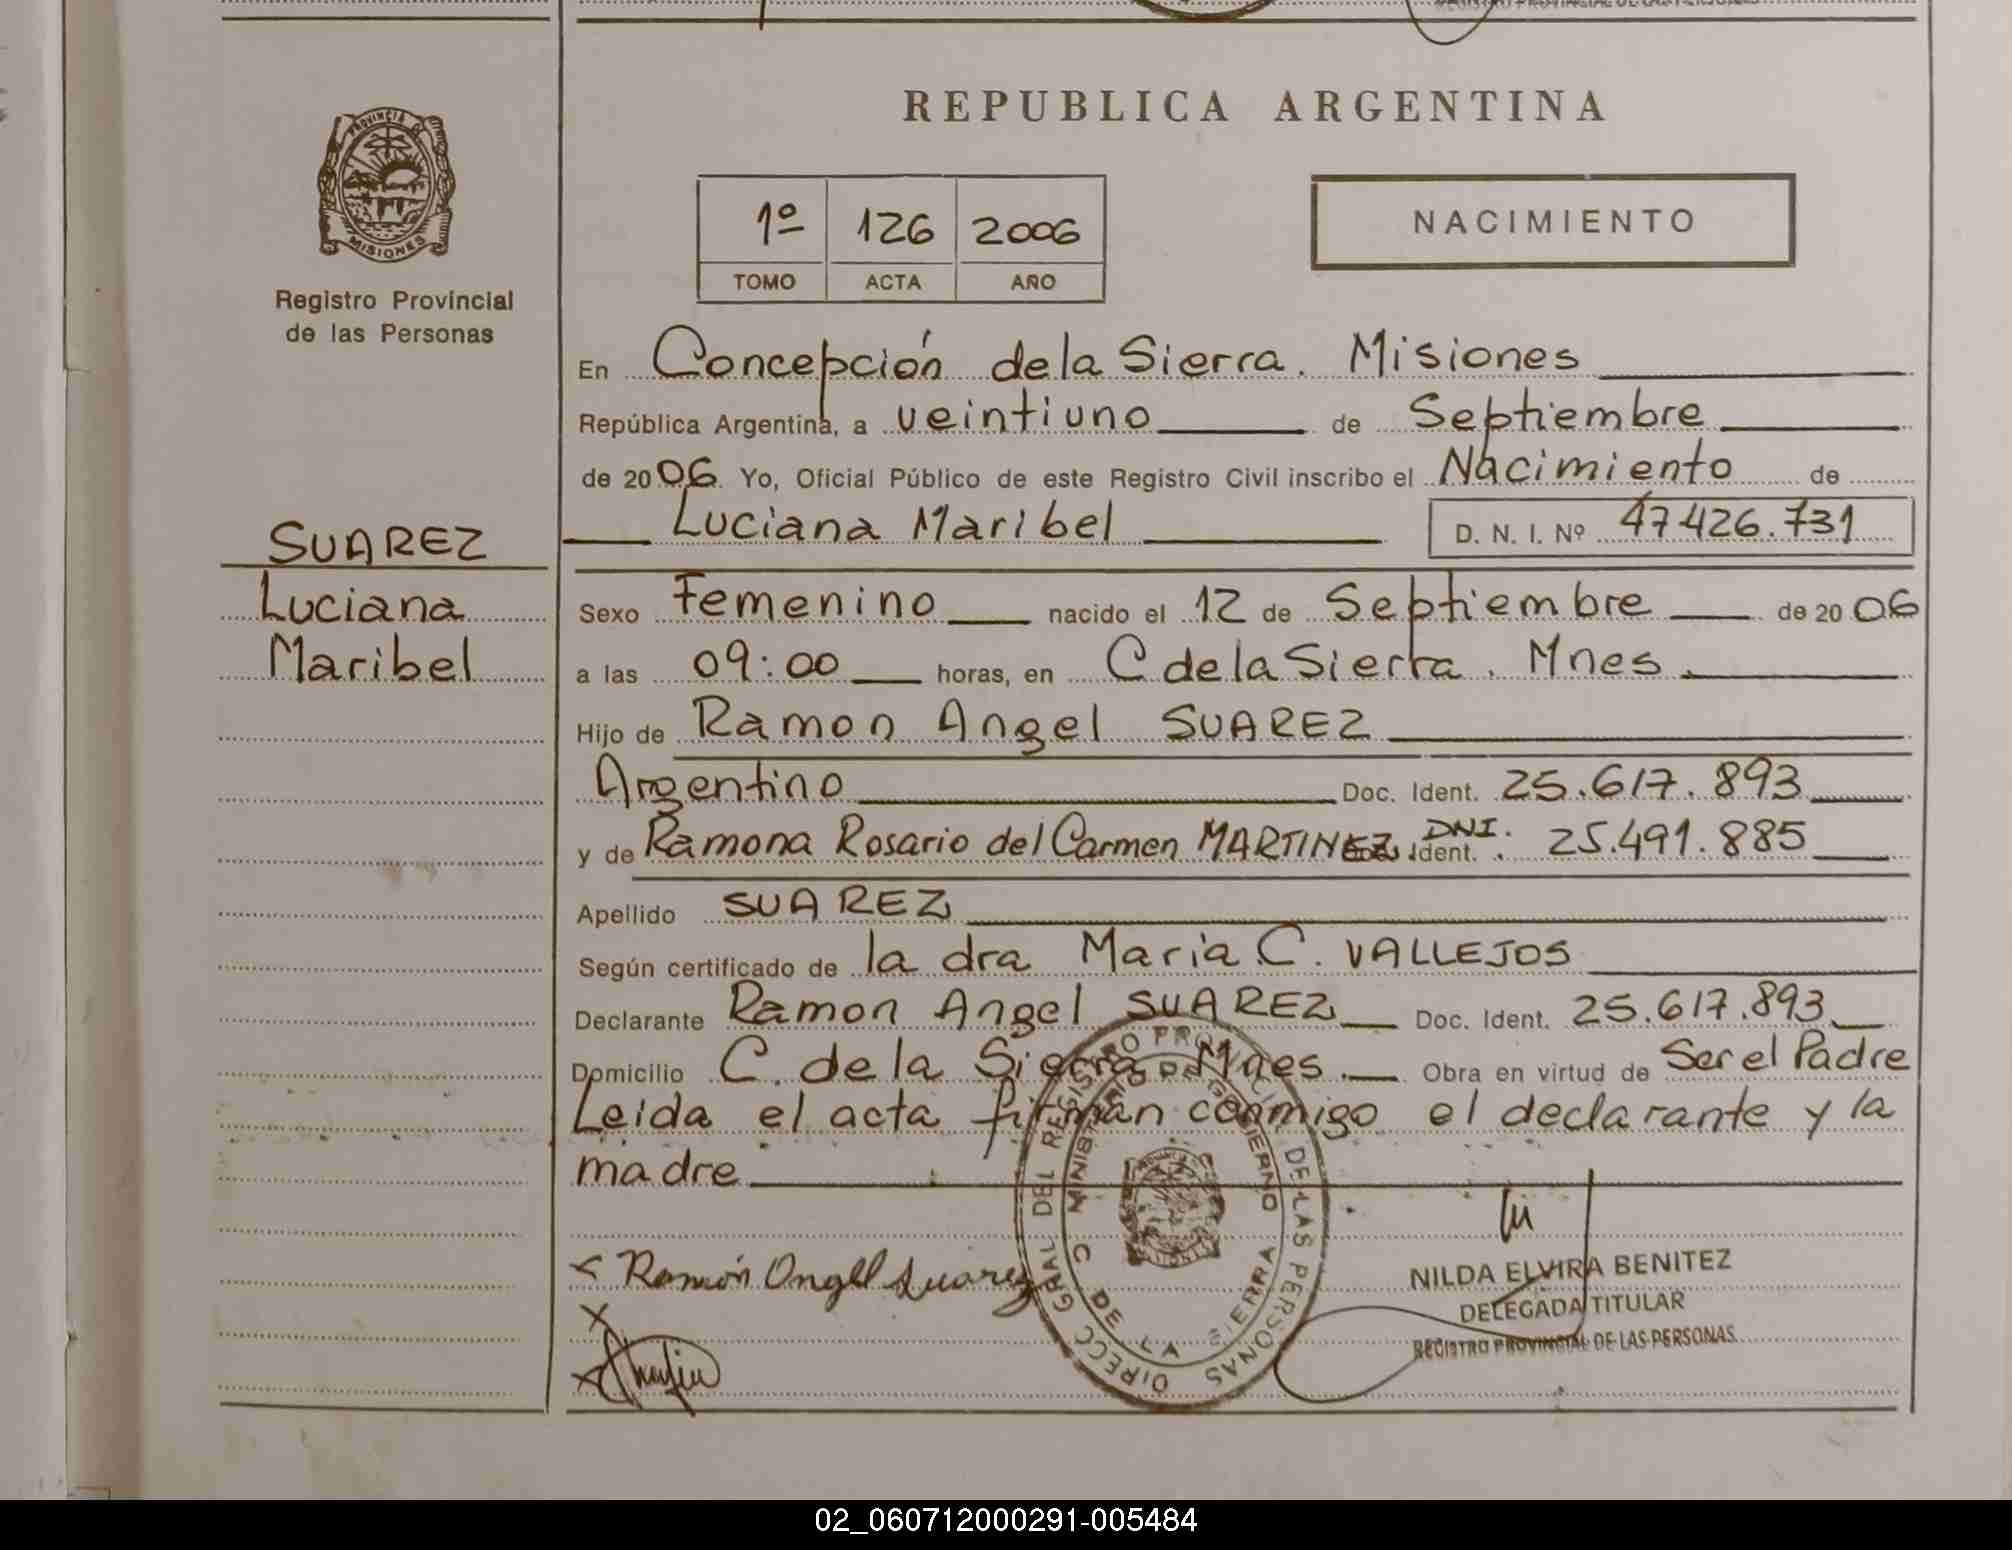 REPUBLICA ARGENTINA
PROVINCIA DE
MISIONES
Registro Provincial
de las Personas
1º 126 2006
TOMO ACTA AÑO
NACIMIENTO
SUAREZ
Luciana
Maribel
En Concepción de la Sierra. Misiones
República Argentina, a veintiuno de Septiembre
de 2006 Yo, Oficial Público de este Registro Civil inscribo el Nacimiento de
Luciana Maribel D. N. I. Nº 47426.731
Sexo Femenino nacido el 12 de Septiembre de 2006
a las 09:00 horas, en C de la Sierra. Mnes.
Hijo de Ramon Angel SUAREZ
Argentino Doc. Ident. 25.617.893
y de Ramona Rosario del Carmen MARTINEZ DNI. Ident. 25.491.885
Apellido SUAREZ
Según certificado de la dra Maria C. VALLEJOS
Declarante Ramon Angel SUAREZ Doc. Ident. 25.617.893
Domicilio C. de la Sierra Mnes. Obra en virtud de Ser el Padre
Leida el acta firman conmigo el declarante y la
madre
Ramón Angel Suarez
DIRECC GRAL DEL REGISTRO PROVINCIAL DE LAS PERSONAS
MINISTERIO DE GOBIERNO
C DE LA SIERRA
NILDA ELVIRA BENITEZ
DELEGADA TITULAR
REGISTRO PROVINCIAL DE LAS PERSONAS
02_060712000291-005484